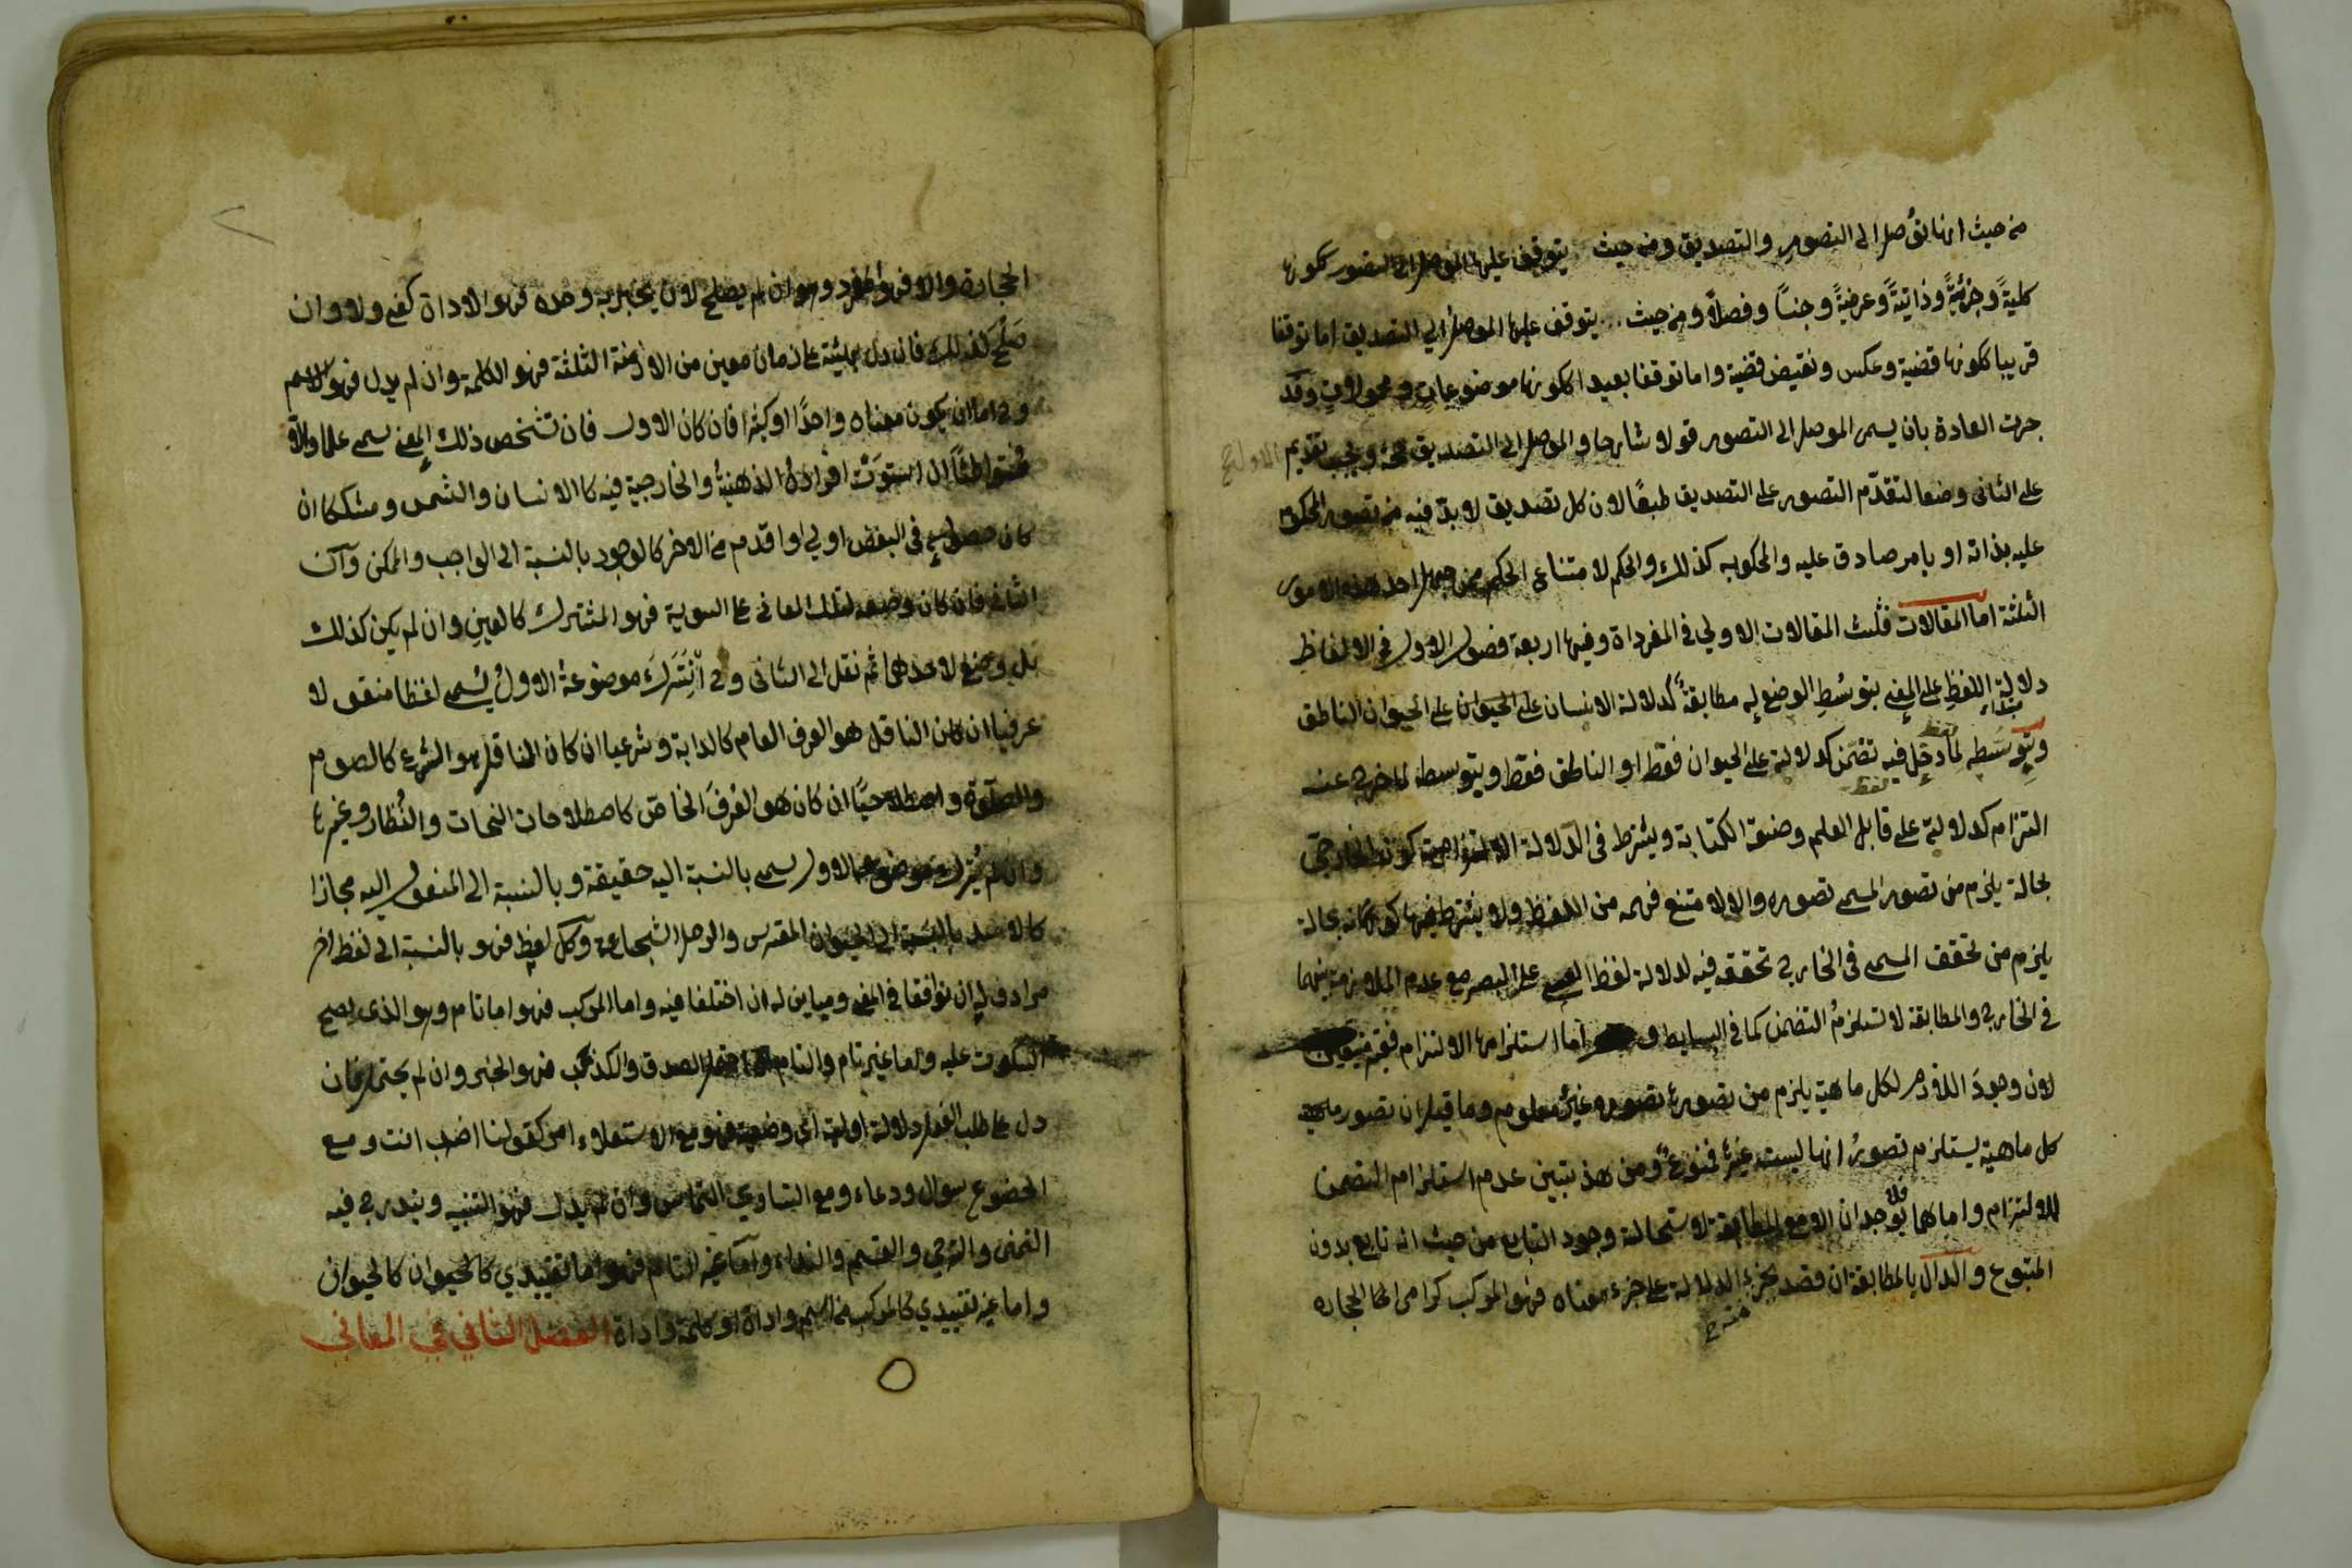 من حيث انها توصل الى التصور والتصديق ومن حيث يتوقف عليها الموصل الى التصور ككونها
كليةً وجزئيةً وذاتيةً وعرضيةً وجنساً وفصلاً ومن حيث يتوقف عليها الموصل الى التصديق اما توقفا
قريبا ككونها قضية وعكس ونقيض قضية واما توقفا بعيدا ككونها موضوعات ومحمولات وقد
جرت العادة بان يسمى الموصل الى التصور قولا شارحا والموصل الى التصديق حجة ويجب تقديم الاول
على الثانى وضعا لتقدّم التصور على التصديق طبعًا لان كل تصديق لا بدّ فيه من تصور المحكوم
عليه بذاته او بامر صادق عليه والمحكوم به كذلك والحكم لامتناع الحكم من جهل احد هذه الامور
الثلثة اما المقالات فثلث المقالات الاولي في المفرداة وفيها اربعة فصول الاول في الالفاظ
دلالة اللفظ على المعنى بتوسّط الوضع له مطابقةً كدلالة الانسان على الحيوان على الحيوان الناطق
وبتوسّطه لما دخل فيه تضمن كدلالة على الحيوان فقط او الناطق فقط وبتوسطه لما خرج عنه
التزام كدلالة على قابل العلم وصنعة الكتابة ويشترط فى الدّلالة الالتزامية كون الخارجي
بحالة يلزم من تصور المسمى تصوره والا لامتنع فهمه من اللفظ ولا يشترط فيها كونه بحالة
يلزم من تحقق المسمى فى الخارج تحققه فيه لدلالة لفظ العمى على البصر مع عدم الملازمة بينهما
في الخارج والمطابقة لا تستلزم التضمن كما في البسايط و اما استلزامها الالتزام فغير متيقن
لان وجودَ اللازم لكل ماهية يلزم من تصورها تصوره غير معلوم وما قيل ان تصور ماهية
كل ماهية يستلزم تصور انها ليست غيرها فممنوع ومن هذ يتبين عدم استلزام التضمن
للالتزام واما هما فلا يوجدان الا مع المطابقة لاستحالة وجود التابع من حيث انه تابع بدون
المتبوع والدال بالمطابقة ان قصد بجزء الدلالة على جزء معناه فهو المركب كرامى الحجاره
منه
الحجارة والا فهو المفرد وهو ان لم يصلح لان يخبر به وحده فهو الاداة كفى ولا وان
صَلُح كذلك فان دل بهيئة على زمان معين من الازمنة الثلثة فهو الكلمة وان لم يدل فهو الاسم
وح اما ان يكون معناه واحدًا او كثيرا فان كان الاول فان تشخص ذلك المعنى يسمى علما والا
متواطئًا ان استوَت افرادهُ الذهنيةُ والخارجية فيه كالانسان والشمس ومشككا ان
كان حصوله فى البعض اولي او اقدم من الاخر كالوجود بالنسبة الى الواجب والممكن وان كان
الثانى فان كان وضعه لتلك المعانى على السوية فهو المشترك كالعينِ وان لم يكن كذلك
بل وضع لاحدهما ثم نقل الى الثانى وح ان تُركَ موضوعهُ الاولُ يُسمى لفظا منقولا
عرفيا ان كان الناقل هو العرف العام كالدابة وشرعيا ان كان الناقل هو الشرع كالصوم
والصلوة واصطلاحيّا ان كان هو العُرفَ الخاصّ كاصطلاحات النحات والنُظار وغيرها
وان لم يُترك موضوعه الاول يسمى بالنسبة اليه حقيقة وبالنسبة الى المنقول اليه مجازا
كالاسد بالنسبة الى الحيوان المفترس والرجل الشجاع وكل لفظ فهو بالنسبة الى لفظ اخر
مرادف له ان توافقا في المعنى ومباين له ان اختلفا فيه واما المركب فهو اما تام وهو الذى يصح
السكوت عليه واما غير تام والتام ان احتمل الصدق والكذب فهو الخبر وان لم يحتمل فان
دل على طلب الفعل دلالة اولية اى وضعية فهو مع الاستعلاء امر كقولنا اضرب انت ومع
الخضوع سوال ودعاء ومع التساوي التماس وان لم يدل فهو التنبيه ويندرج فيه
التمنى والترجي والقسم والنداء واما غير التام فهو اما تقييدي كالحيوان كالحيوان
واما غير تقييدي كالمركب من اسم واداة او كلمة واداة الفصل الثاني في المعاني